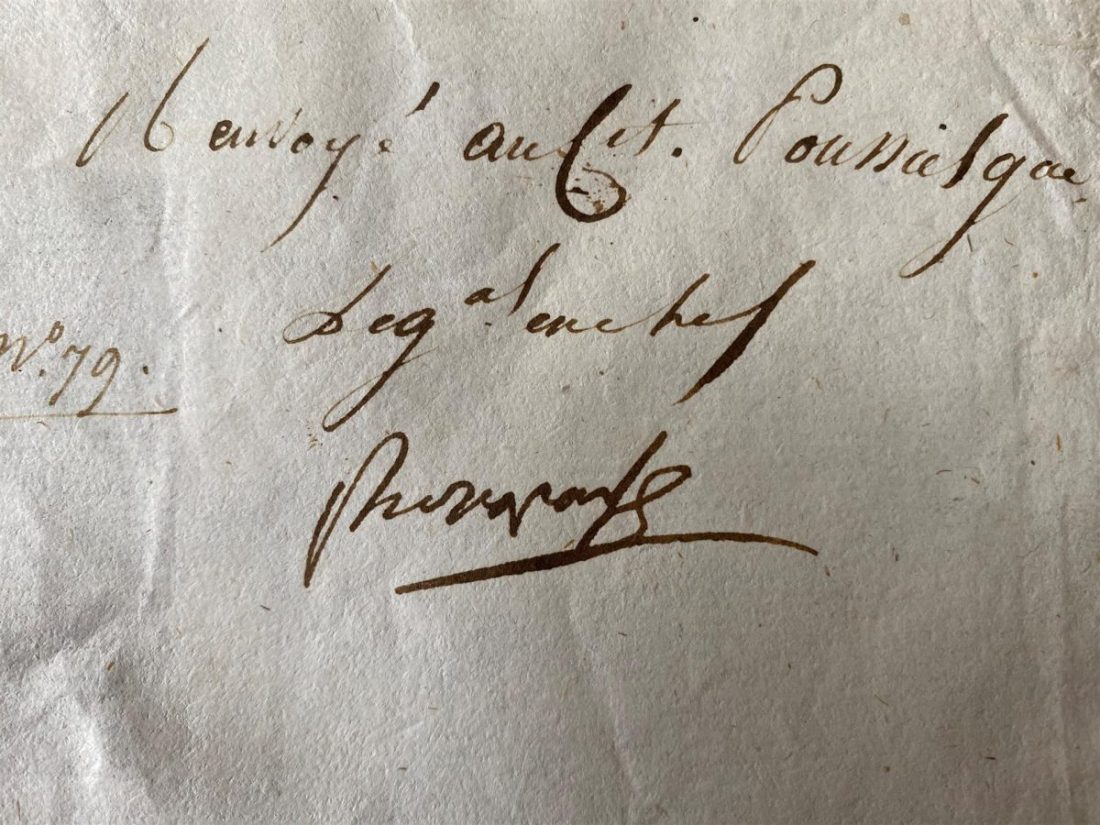 Renvoyé au Cit. Poussielgue
Le gal en chef
No. 79.
Bonaparte